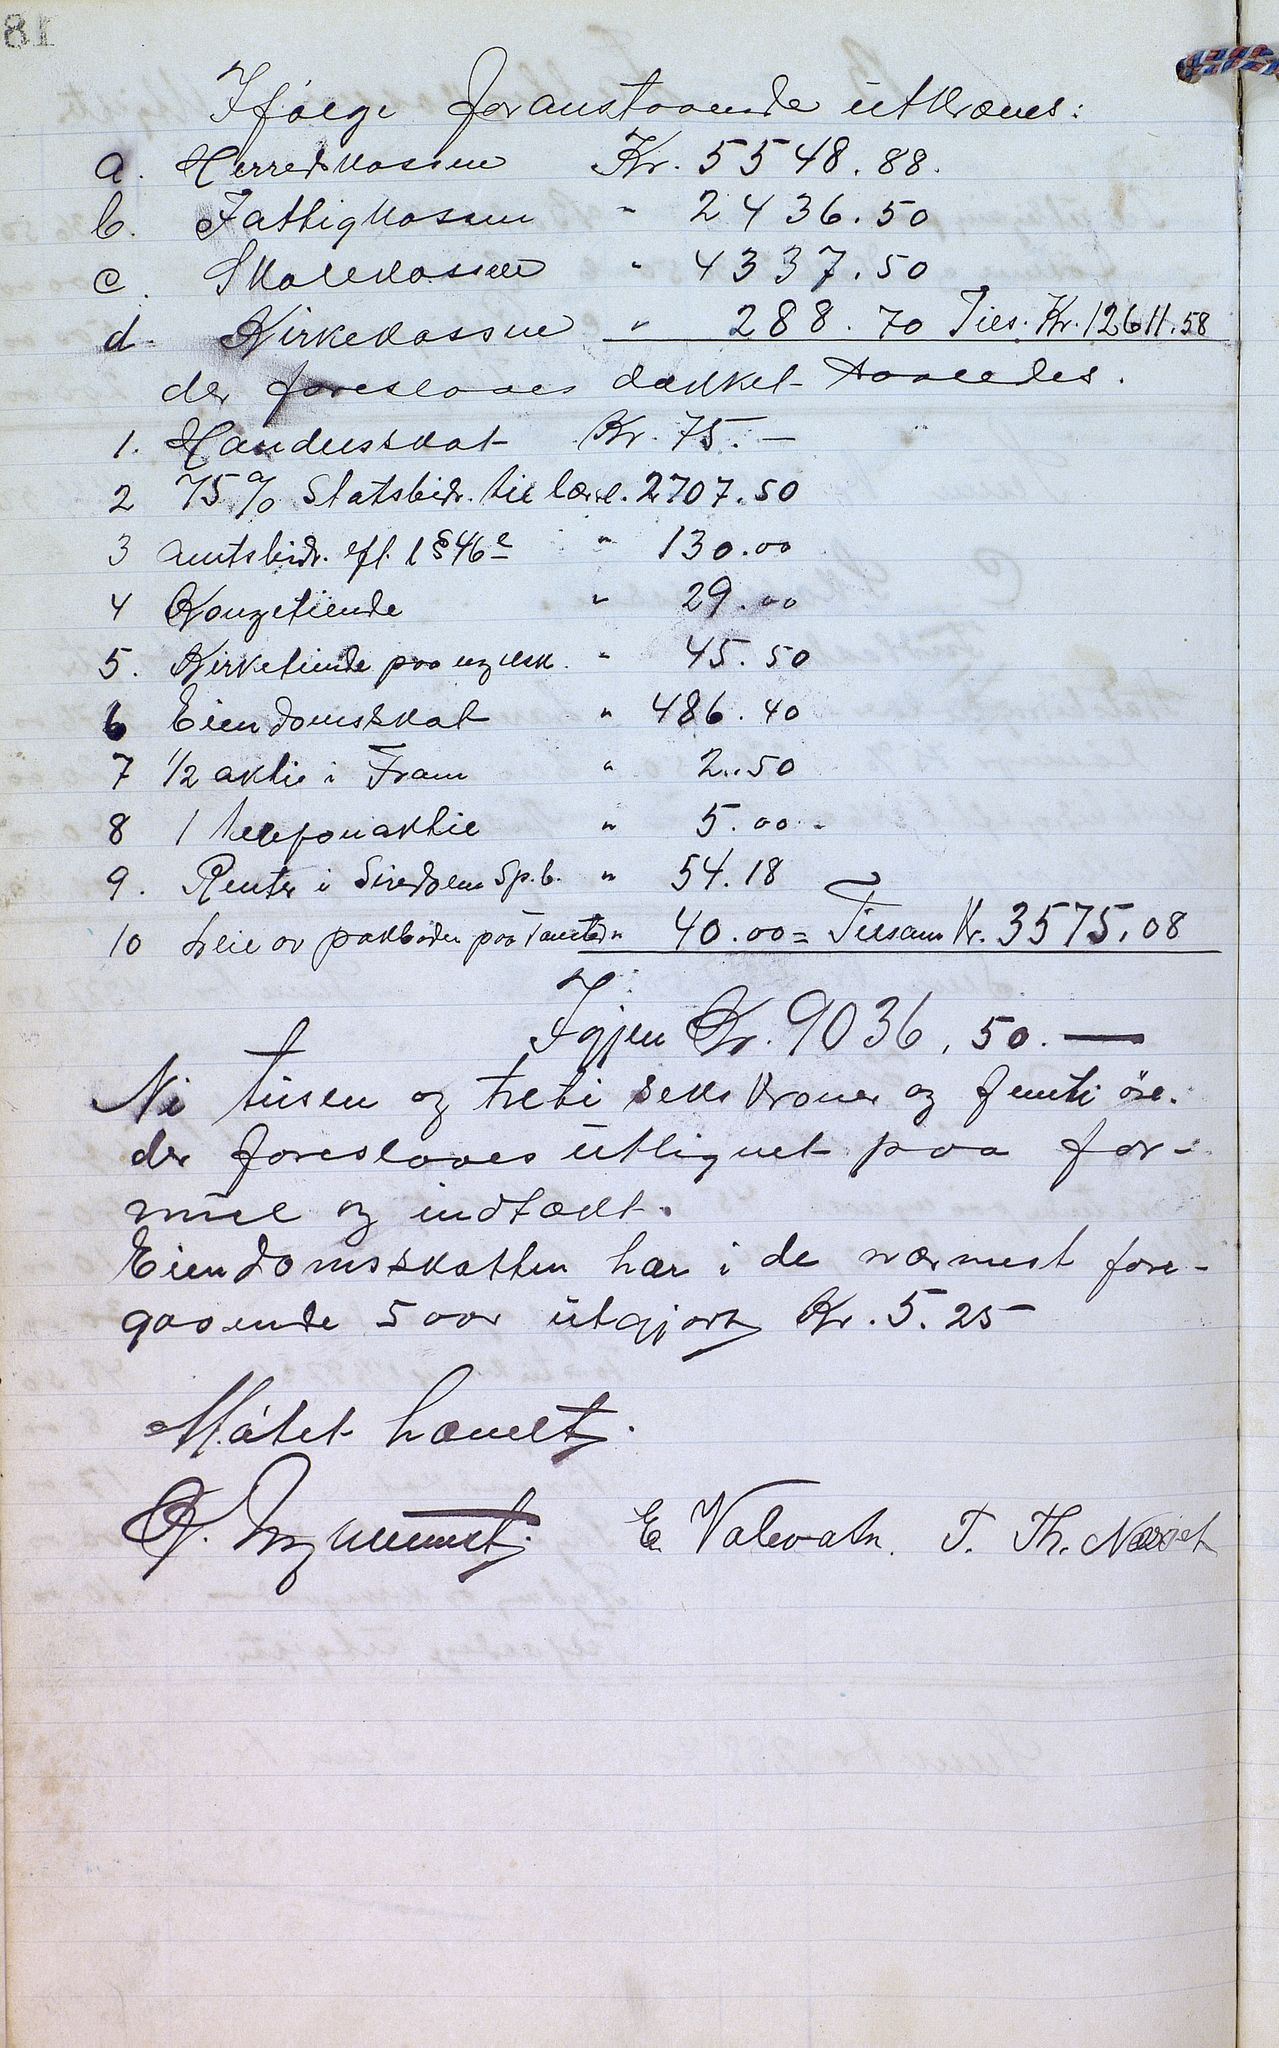 81
Ifølge foranstaaende utkræves:
a. Herredskassen Kr. 5548.88.
b. Fattigkassen " 2436.50
c. Skolekassen " 4337.50
d. Kirkekassen " 288.70 Tils. Kr. 12611.58
der foreslaaes dækket saaledes.
1. Handelsskat Kr. 75.—
2 75% Statsbidr. til lærerl. 2707.50
3 Amtsbidr. efl. l § 46 " 130.00
4 Kongetiende " 29.00
5. Kirketiende paa " 45.50
6 Eiendomsskat " 486.40
7 1/2 aktie i Fram " 2.50
8 1 telefonaktie " 5.00
9. Renter i Siredalens Sp.b. " 54.18
10 Leie av pakboden paa Tonstad " 40.00 = Tilsam Kr. 3575.08
Igjen Kr. 9036,50.—
Ni tusen og treti seks kroner og femti øre.
der foreslaaes utlignet paa for-
mue og indtækt.
Eiendomsskatten har i de nærmest fore-
gaaende 5 aar utgjort Kr. 5.25
Møtet hævet.
E. Valevatn. T. Th. Næset